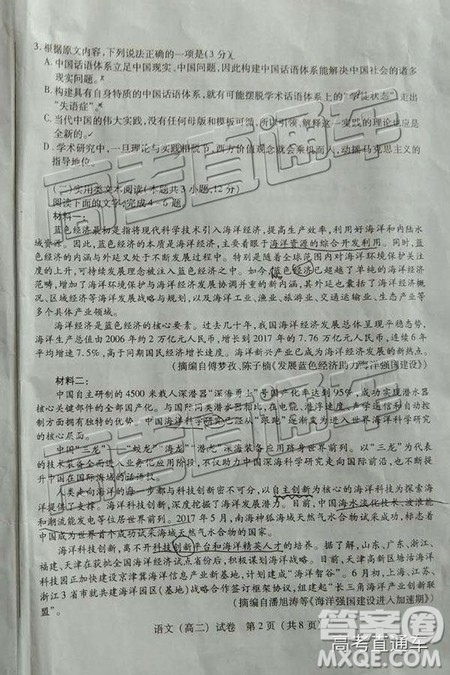 3. 根据原文内容,下列说法正确的一项是(3分)
A. 中国话语体系立足中国现实、中国问题,因此构建中国话语体系能解决中国社会的诸多
现实问题。
B. 构建具有自身特质的中国话语体系,就有可能摆脱学术话语体系上的“学徒状态”,走出
“失语症”。
C. 当代中国的伟大实践,没有任何母版和模板可循,所以引领、解释这一实践的理论也应是
全新的。
D. 学术研究中,一旦理论与实践相脱节,西方价值观念就会乘机而入,动摇马克思主义的
指导地位。
(二)实用类文本阅读(本题共3小题,12分)
阅读下面的文字,完成4~6题。
材料一:
蓝色经济最初是指将现代科学技术引入海洋经济,提高生产效率,利用好海洋和内陆水
域资源。因为
海洋资源的综合开发利用。同时,蓝
色经济的内涵与外延又处于不断发展过程中。特别是随着全球范围内对海洋环境保护关注
度的上升,可持续发展理念被注入蓝色经济之中。如今,蓝色经济已超越了单纯的海洋经济
范畴,增加了海洋环境保护与海洋经济发展协调开重的新内涵,其外延也囊括了海洋经济
概况、区域经济等海洋发展战略与规划,以及海洋工业、渔业、旅游业、交通运输业、生态产业等
多个具体产业领域。
海洋经济是蓝色经济的核心要素。过去几十年,我国海洋经济发展总体呈现上升态势,
海洋生产总值由2006年约2万亿元人民币,增长到2017年的7.76万亿元人民币,连续6年
年均增速7.5%,高于同期国民经济增速。海洋新兴产业已成为我国海洋经济发展的新热点。
(摘编自傅梦孜、陈子楠《发展蓝色经济助力海洋强国建设》)
材料二:
中国自主研制的4500米载人深潜器“深海勇士”号国产化率达到95%,成功实现潜水器
核心关键部件的全部国产化。与国际同类潜水器相比,在电能、潜浮速度、声学通信和自动
控制方面拥有独特的优势。中国海洋科学研究已经从“跟跑”逐渐变为进入世界海洋科学研究
的核心层面。
中国“三龙”——“蛟龙”“海龙”“潜龙”深海装备应用跻身世界前列。以“三龙”为代表
的技术装备全面进入业务化应用阶段,不仅有力助推了中国深海科学研究走向国际前沿,也不断提
升中国在国际海域的话语权。
人类走向海洋的每一步都与科技创新密不可分,以自主创新为核心的海洋科技为探查海
洋提供了支撑。海洋科技创新,深度挖掘了海洋发展潜力。目前,中国海水淡化技术、波浪能
和潮流能发电等位居世界前列。2017年5月,南海神狐海域天然气水合物试采成功,标志着
中国成为世界首个成功试采海域天然气水合物的国家。
海洋科技创新,离不开科技创新平台和海洋精英人才的培养。据了解,山东、广东、浙江、
福建、天津在获批全国海洋经济试点省份后,积极谋划海洋战略。
6月初,上海、
浙江3省市就共建海洋园区(基地)战略合作签订合作协议,组建“长三角海洋产业创新联
盟”。
(摘编自潘旭涛等《海洋强国建设进入加速期》)
语文(高二)试卷 第2页(共8页)
高考直通车
高考直通车
MXQE.COM